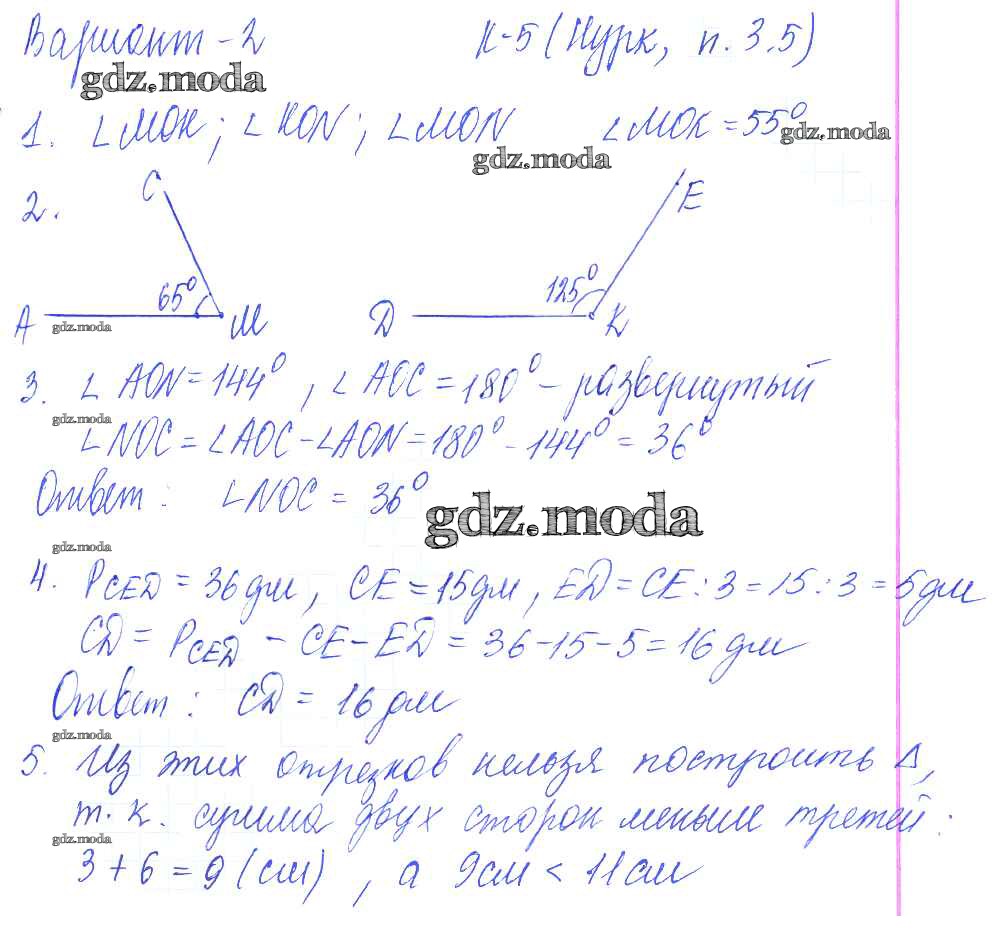 Вариант-2 К-5 (Нурк, п. 3.5)
gdz.moda
1. ∠МОК; ∠KON; ∠MON ∠МОК = 55°
gdz.moda
gdz.moda
2. C E
65° 125°
A M D K
gdz.moda
3. ∠AON = 144°, ∠AOC = 180° - развернутый
gdz.moda
∠NOC = ∠AOC - ∠AON = 180° - 144° = 36°
Ответ: ∠NOC = 36°
gdz.moda
gdz.moda
4. PCED = 36 дм, CE = 15 дм, ED = CE : 3 = 15 : 3 = 5 дм
CD = PCED - CE - ED = 36 - 15 - 5 = 16 дм
Ответ: CD = 16 дм
gdz.moda
5. Из этих отрезков нельзя построить Δ,
т. к. сумма двух сторон меньше третей:
gdz.moda
3 + 6 = 9 (см), а 9 см < 11 см